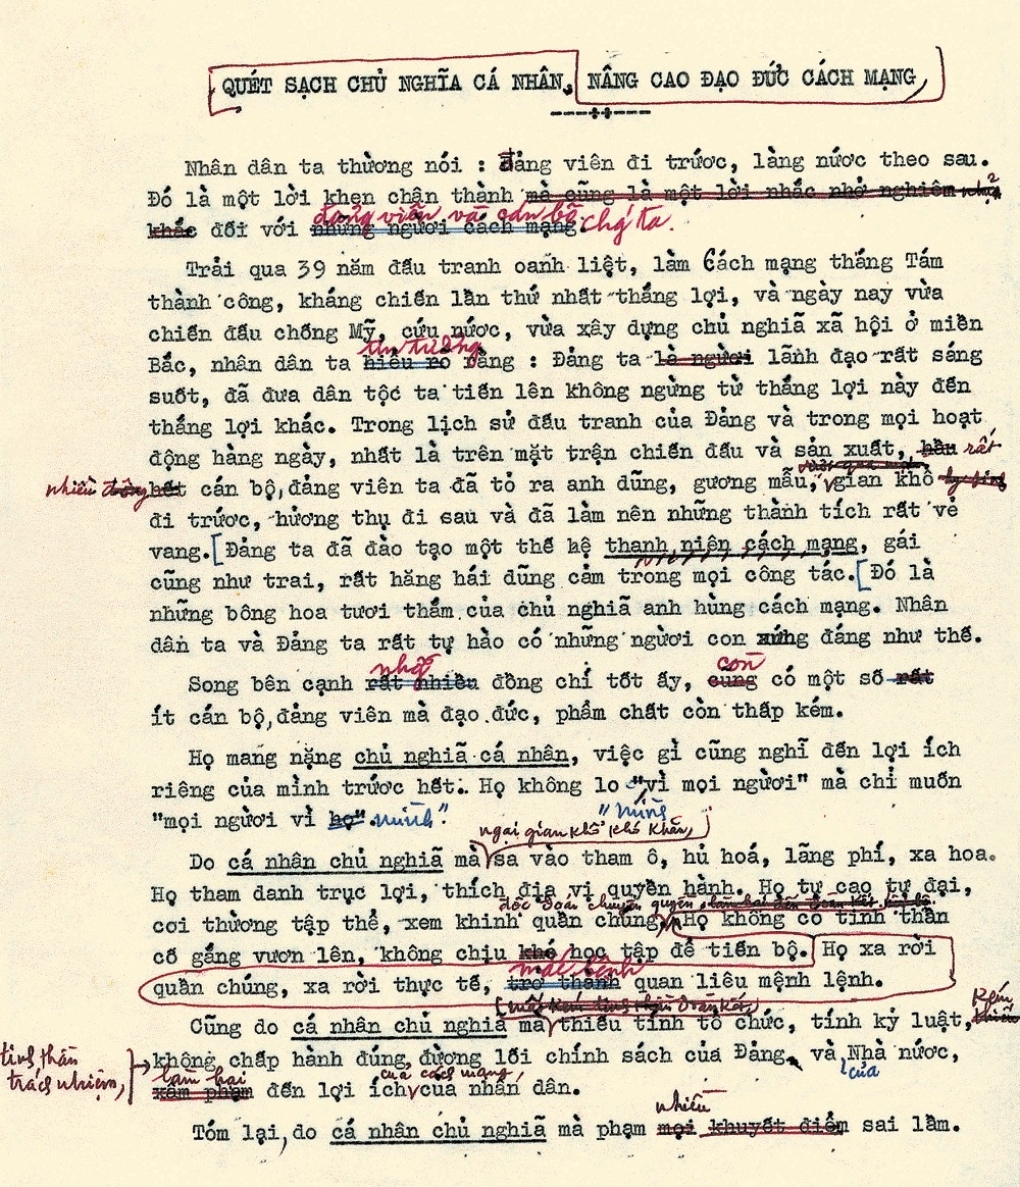 QUÉT SẠCH CHỦ NGHĨA CÁ NHÂN, NÂNG CAO ĐẠO ĐỨC CÁCH MẠNG
Nhân dân ta thường nói : đảng viên đi trước, làng nước theo sau.
Đó là một lời khen chân thành mà cũng là một lời nhắc nhở nghiêm
đảng viên và cán bộ chúng ta.
khắc đối với những người cách mạng.
Trải qua 39 năm đấu tranh oanh liệt, làm Cách mạng tháng Tám
thành công, kháng chiến lần thứ nhất thắng lợi, và ngày nay vừa
chiến đấu chống Mỹ, cứu nước, vừa xây dựng chủ nghiã xã hội ở miền
tin tưởng
Bắc, nhân dân ta hiểu rõ rằng : Đảng ta là người lãnh đạo rất sáng
suốt, đã đưa dân tộc ta tiến lên không ngừng từ thắng lợi này đến
thắng lợi khác. Trong lịch sử đấu tranh của Đảng và trong mọi hoạt
động hàng ngày, nhất là trên mặt trận chiến đấu và sản xuất, hầu rất
nhiều hết cán bộ, đảng viên ta đã tỏ ra anh dũng, gương mẫu, gian khổ
đi trước, hưởng thụ đi sau và đã làm nên những thành tích rất vẻ
vang. [Đảng ta đã đào tạo một thế hệ thanh niên cách mạng, gái
cũng như trai, rất hăng hái dũng cảm trong mọi công tác. [Đó là
những bông hoa tươi thắm của chủ nghiã anh hùng cách mạng. Nhân
dân ta và Đảng ta rất tự hào có những người con xứng đáng như thế.
còn
Song bên cạnh rất nhiều đồng chí tốt ấy, cũng có một số rất
ít cán bộ, đảng viên mà đạo đức, phẩm chất còn thấp kém.
Họ mang nặng chủ nghiã cá nhân, việc gì cũng nghĩ đến lợi ích
riêng của mình trước hết. Họ không lo "vì mọi người" mà chỉ muốn
"mình
"mọi người vì họ". mình".
ngại gian khổ khó khăn,
Do cá nhân chủ nghiã mà sa vào tham ô, hủ hoá, lãng phí, xa hoa.
Họ tham danh trục lợi, thích địa vị quyền hành. Họ tự cao tự đại,
độc đoán chuyên quyền,
coi thường tập thể, xem khinh quần chúng, Họ không có tinh thần
cố gắng vươn lên, không chịu khó học tập để tiến bộ. Họ xa rời
mắc bệnh
quần chúng, xa rời thực tế, trở thành quan liêu mệnh lệnh.
Cũng do cá nhân chủ nghiã mà thiếu tính tổ chức, tính kỷ luật, kém
tinh thần
trách nhiệm,
không chấp hành đúng đường lối chính sách của Đảng và Nhà nước,
của
làm hại của cách mạng,
xâm phạm đến lợi ích của nhân dân.
nhiều
Tóm lại, do cá nhân chủ nghiã mà phạm mọi khuyết điểm sai lầm.